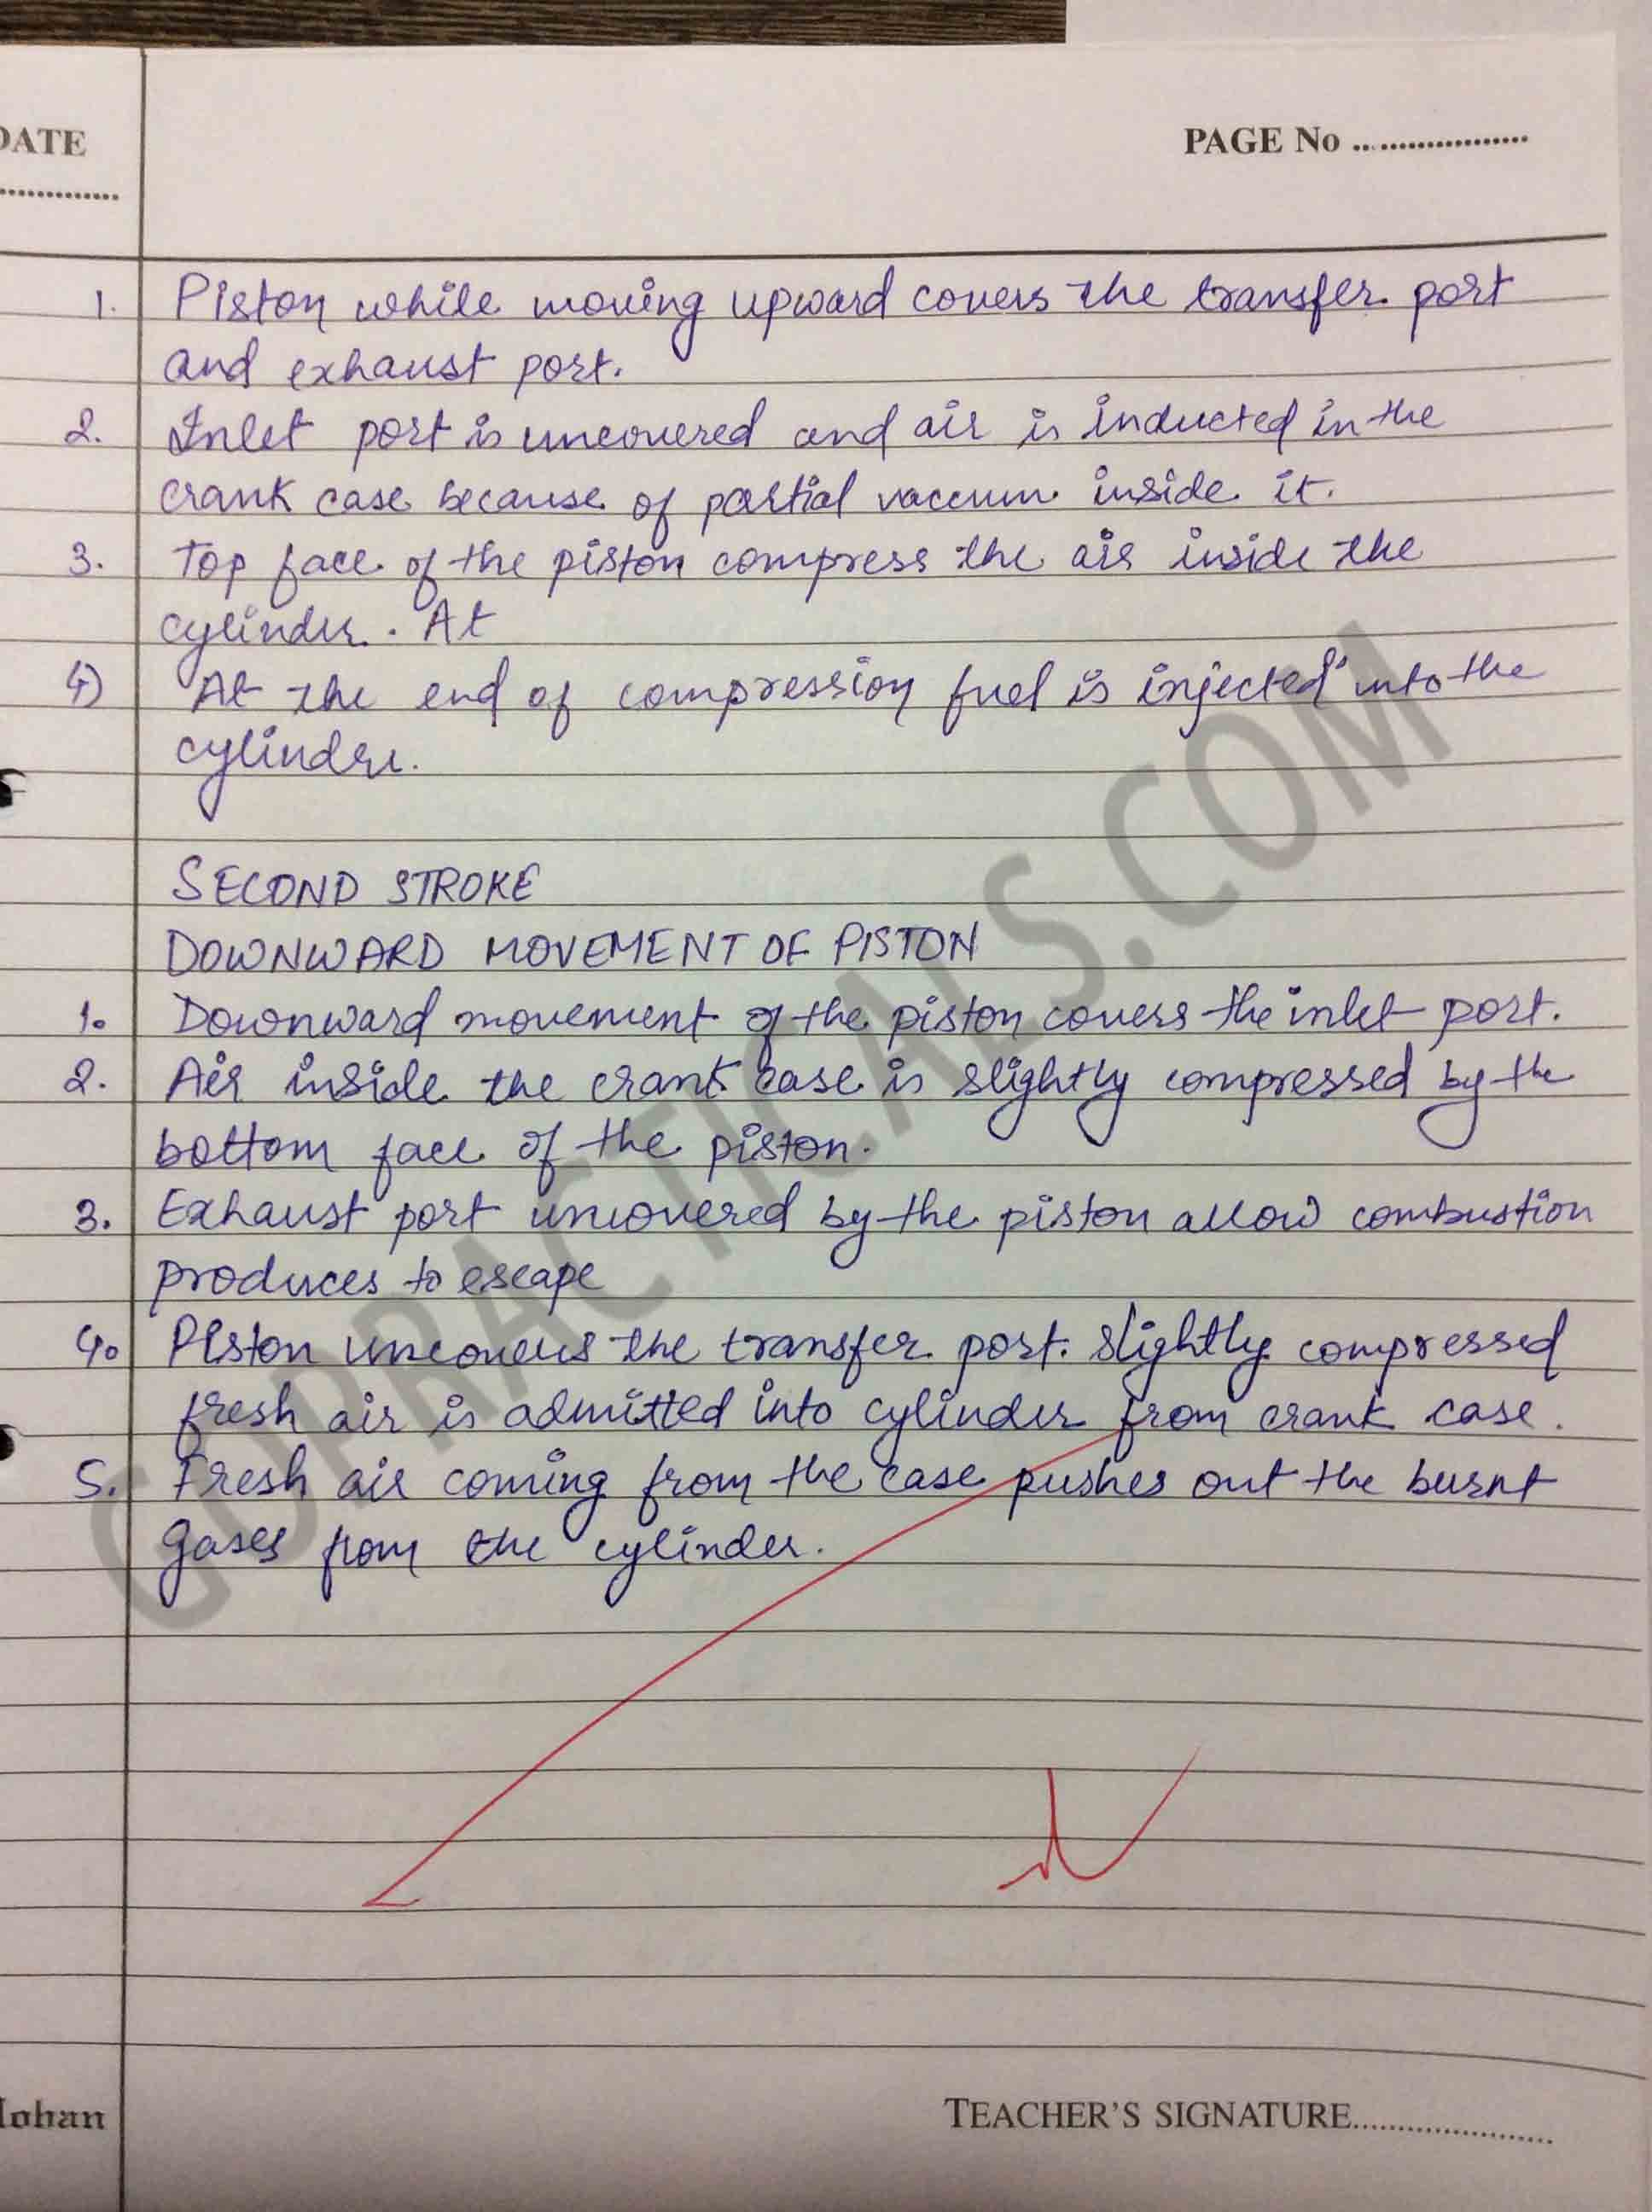 DATE
PAGE No ...................
..............
1. Piston while moving upward covers the transfer port
and exhaust port.
2. Inlet port is uncovered and air is inducted in the
crank case because of partial vaccum inside it.
3. Top face of the piston compress the air inside the
cylinder. At
4) At the end of compression fuel is injected into the
cylinder.
SECOND STROKE
DOWNWARD MOVEMENT OF PISTON
1. Downward movement of the piston covers the inlet port.
2. Air inside the crank case is slightly compressed by the
bottom face of the piston.
3. Exhaust port uncovered by the piston allow combustion
produces to escape
4. Piston uncovers the transfer port. Slightly compressed
fresh air is admitted into cylinder from crank case.
5. Fresh air coming from the case pushes out the burnt
gases from the cylinder.
GUPRACTICALS.COM
TEACHER'S SIGNATURE......................